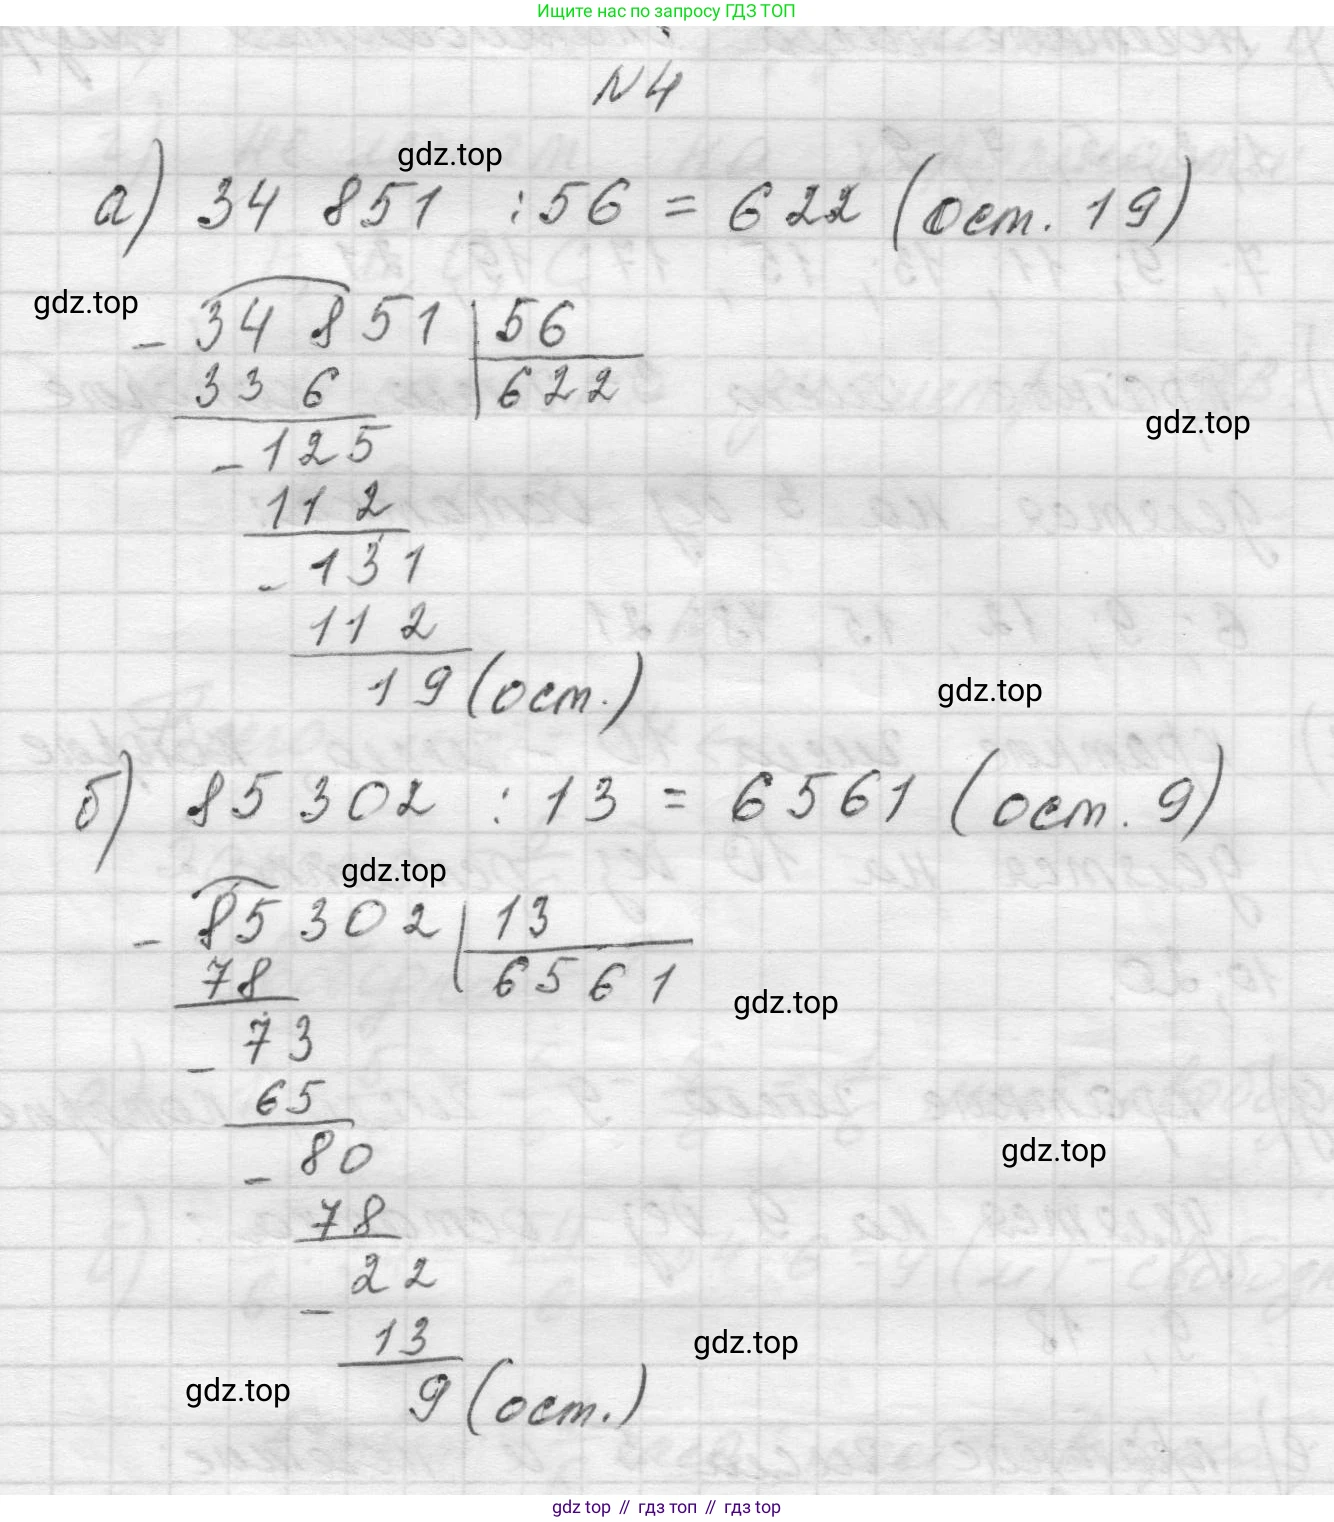 Ищите нас по запросу ГДЗ ТОП
N4
gdz.top
а) 34 851 : 56 = 622 (ост. 19)
gdz.top
- 34 851 | 56
336 | 622
gdz.top
- 125
112
- 131
112
19 (ост.)
gdz.top
б) 85 302 : 13 = 6561 (ост. 9)
gdz.top
- 85 302 | 13
78 | 6561
gdz.top
- 73
65
- 80
gdz.top
78
- 22
13
gdz.top
9 (ост.)
gdz.top
gdz top // гдз топ // гдз top